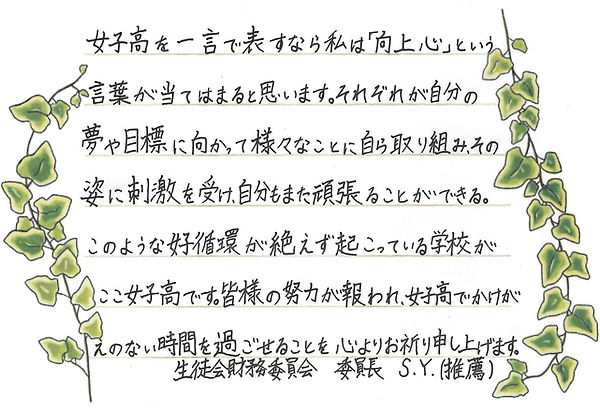 女子高を一言で表すなら私は「向上心」という
言葉が当てはまると思います。それぞれが自分の
夢や目標に向かって様々なことに自ら取り組み、その
姿に刺激を受け、自分もまた頑張ることができる。
このような好循環が絶えず起こっている学校が
ここ女子高です。皆様の努力が報われ、女子高でかけが
えのない時間を過ごせることを心よりお祈り申し上げます。
生徒会財務委員会 委員長 S.Y.(推薦)